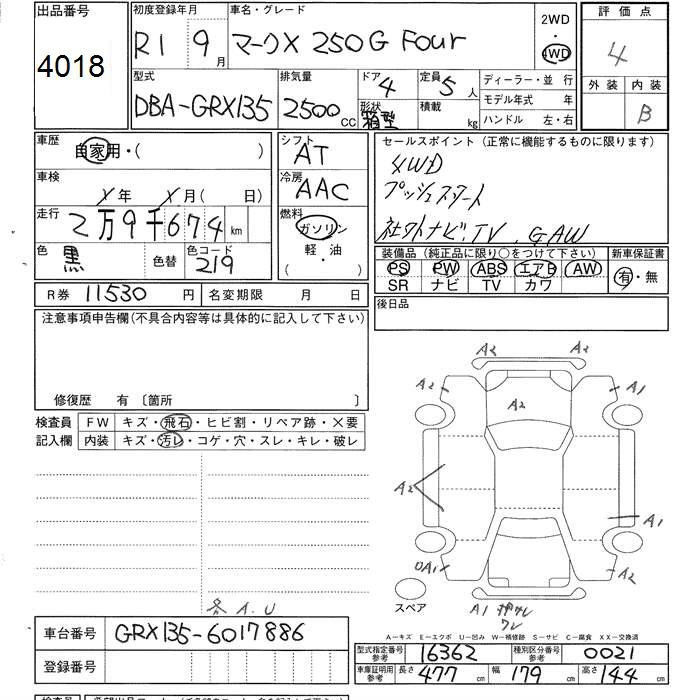 出品番号
4018
初度登録年月
R1 9月
車名・グレード
マークX 250G Four
2WD
・
4WD
評価点
4
外装 内装
B
型式
DBA-GRX135
排気量
2500 CC
ドア 4
形状 箱型
定員 5人
積載 kg
ディーラー・並 行
モデル年式 年
ハンドル 左・右
車歴
自家用・( )
車検
X年 X月( 日)
走行
2万9千674 km
色
黒
色替
色コード
219
シフト
AT
冷房
AAC
燃料
ガソリン
軽・油
( ・ )
セールスポイント(正常に機能するものに限ります)
4WD
プッシュスタート
社外ナビ,TV, GAW
装備品(純正品に限り○をつけて下さい)
PS PW ABS エアB AW
SR ナビ TV カワ
新車保証書
有・無
R券 11530 円
名変期限 月 日
後日品
注意事項申告欄(不具合内容等は具体的に記入して下さい)
修復歴 有〔箇所 〕
検査員
記入欄
FW キズ・飛石・ヒビ割・リペア跡・×要
内装 キズ・汚レ・コゲ・穴・スレ・キレ・破レ
A2 A2
A2 A1
A2
A2
A1
A1 A2
スペア
A1 押サレ
ワレ
各 A.U
A-キズ E-エクボ U-凹み W-補修跡 S-サビ C-腐食 XX-交換済
車台番号
GRX135-6017886
登録番号
型式指定番号
参考
16362
種別区分番号
参考
0021
車庫証明用
参考
長さ 477 cm
幅 179 cm
高さ 144 cm